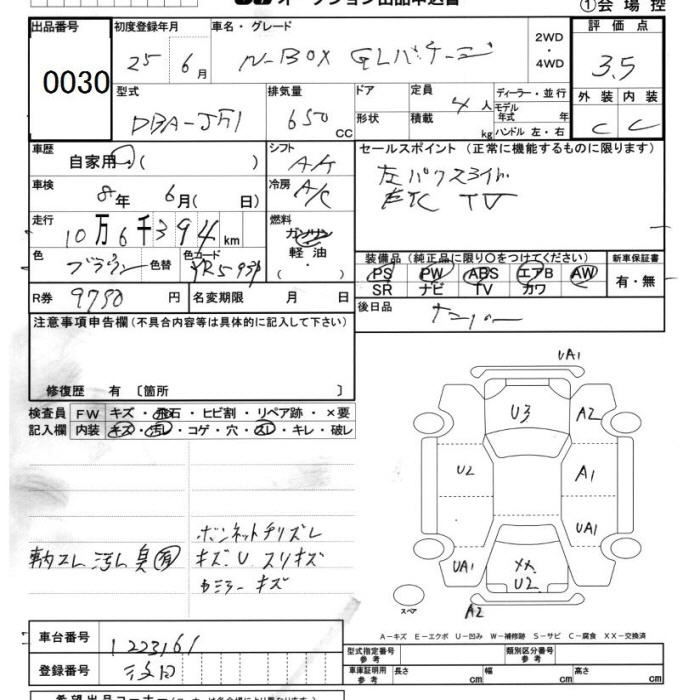 オークション出品申込書
①会場控
出品番号
0030
初度登録年月
25 6月
車名・グレード
N-BOX GLパケージ
2WD
・
4WD
評価点
3.5
外装 内装
C C
型式
DBA-JF1
排気量
650 CC
ドア
形状
定員
4人
積載
kg
ディーラー・並行
モデル年式 年
ハンドル 左・右
車歴
自家用・( )
シフト
AT
車検
8年 6月( 日)
冷房
A/C
走行
10万6千394km
燃料
ガソリン
軽油
・
( )
色
ブラウン
色替
色カード
R593
R券
9730円
名変期限 月 日
セールスポイント (正常に機能するものに限ります)
左パワスライド
ETC TV
装備品 (純正品に限り○をつけてください)
PS PW ABS エアB AW
SR ナビ TV カワ
新車保証書
有・無
後日品
注意事項申告欄 (不具合内容等は具体的に記入して下さい)
修復歴 有 〔箇所 〕
検査員 FW キズ・飛石・ヒビ割・リペア跡・×要
記入欄 内装 キズ・汚レ・コゲ・穴・スレ・キレ・破レ
ボンネットチリズレ
キズ.U スリキズ
カミラーキズ
内スレ 汚レ 臭有
UA1
U3
A2
U2
A1
UA1
UA1
XX
U2
A2
スペア
A-キズ E-エクボ U-凹み W-補修跡 S-サビ C-腐食 XX-交換済
車台番号
1223161
登録番号
型式指定番号
参考
類別区分番号
参考
車庫証明用
参考
長さ cm 幅 cm 高さ cm